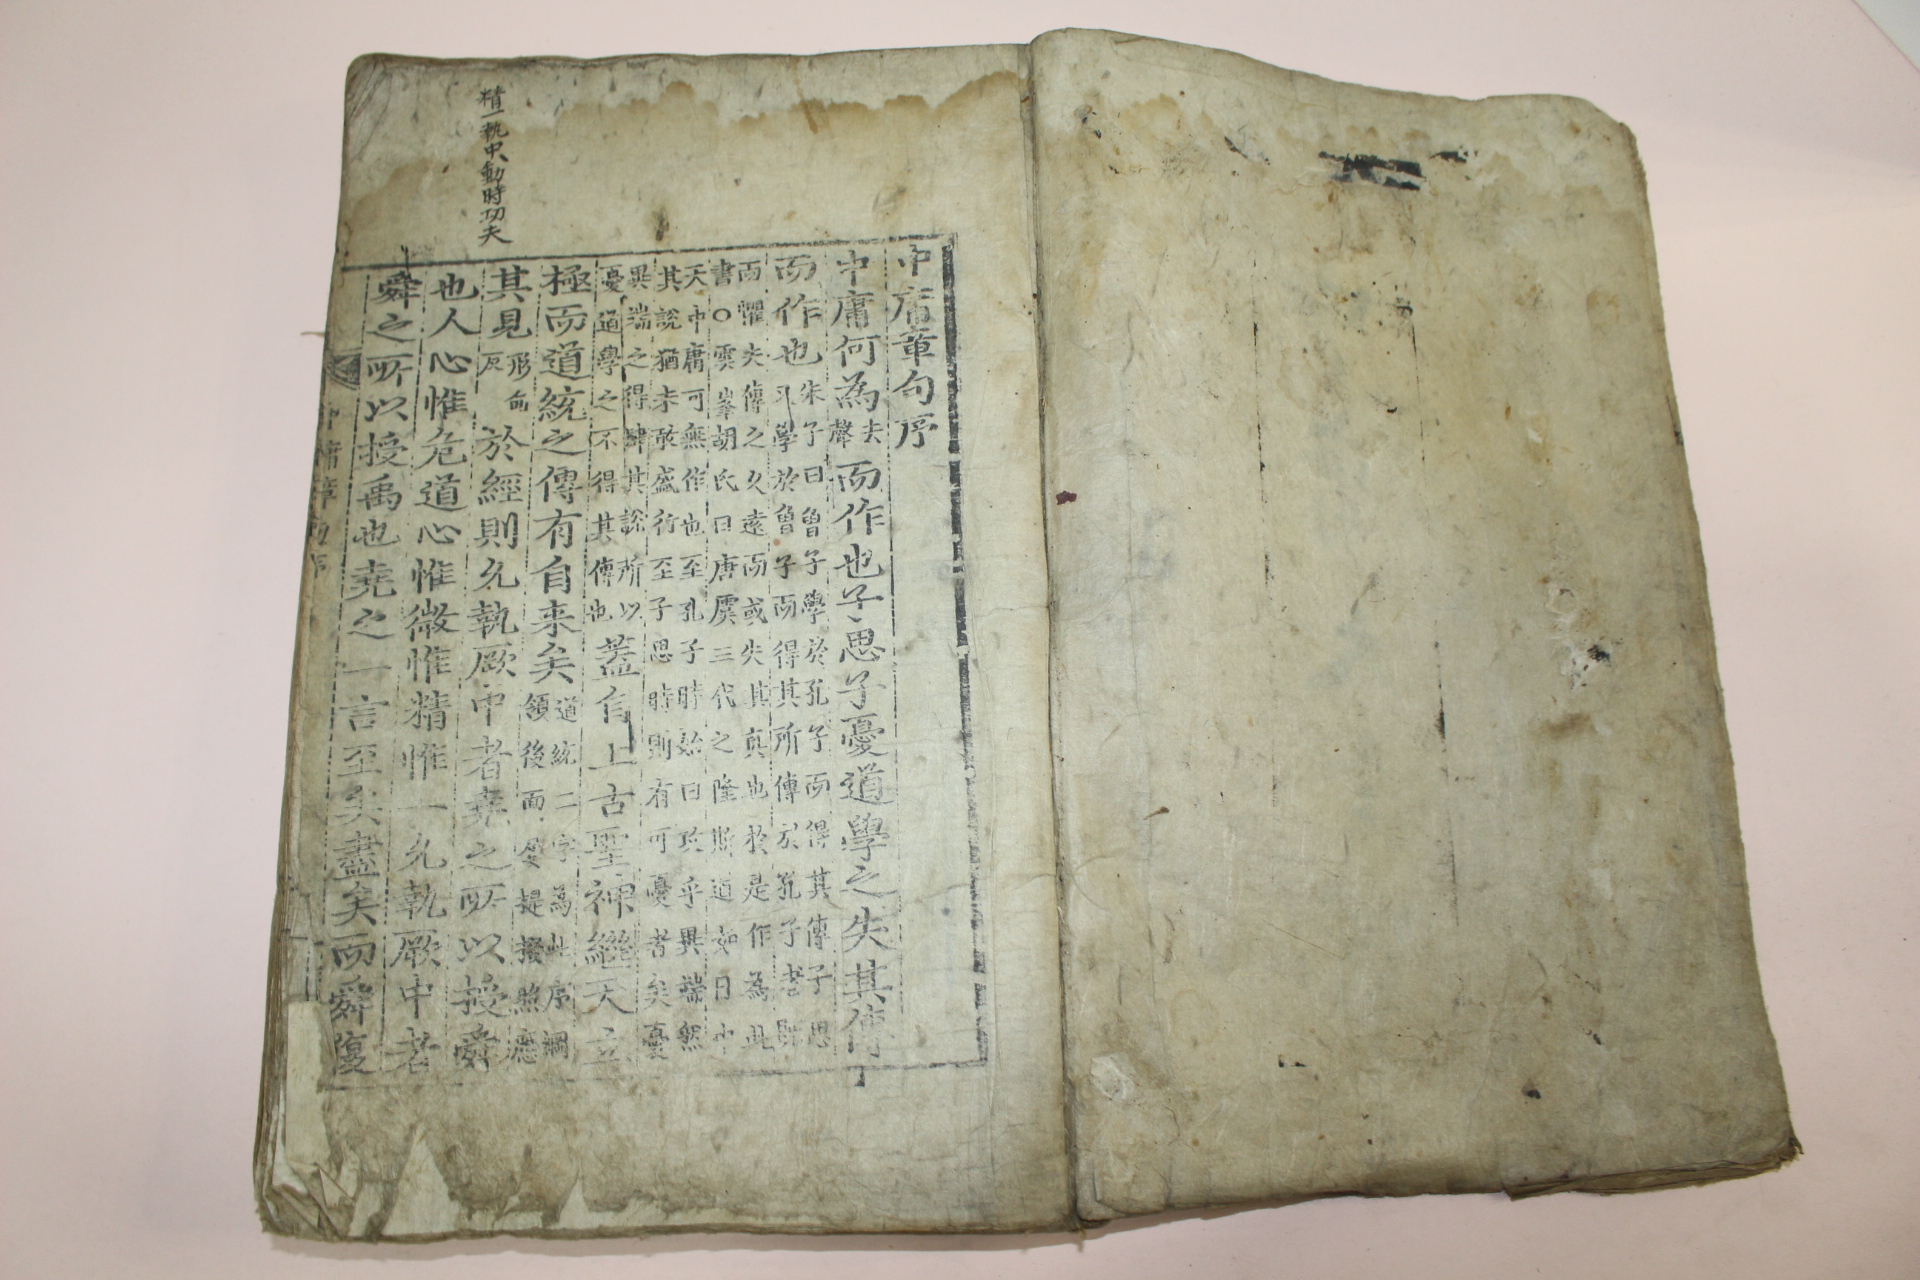 中庸章句序
中庸何為
去
聲
而作也子思子憂道學之失其傳
而作也
朱子曰曾子學於孔子而得其傳子思
又學於曾子而得其所傳於孔子者既
而懼夫傳之久遠而或失其真也於是作為此
書○雲峯胡氏曰唐虞三代之隆斯道如日中
天中庸可無作也至孔子時始曰攻乎異端然
其說猶未敢盛行至子思時則有可憂者矣憂
異端之得肆其說所以
憂道學之不得其傳也
蓋自上古聖神繼天立
極而道統之傳有自来矣
道統二字為此序綱
領後面屢提掇照應
其見
形甸
反
於經則允執厥中者堯之所以授舜
精一執中動時功夫
也人心惟危道心惟微惟精惟一允執厥中者
舜之所以授禹也堯之一言至矣盡矣而舜復
中庸章句序